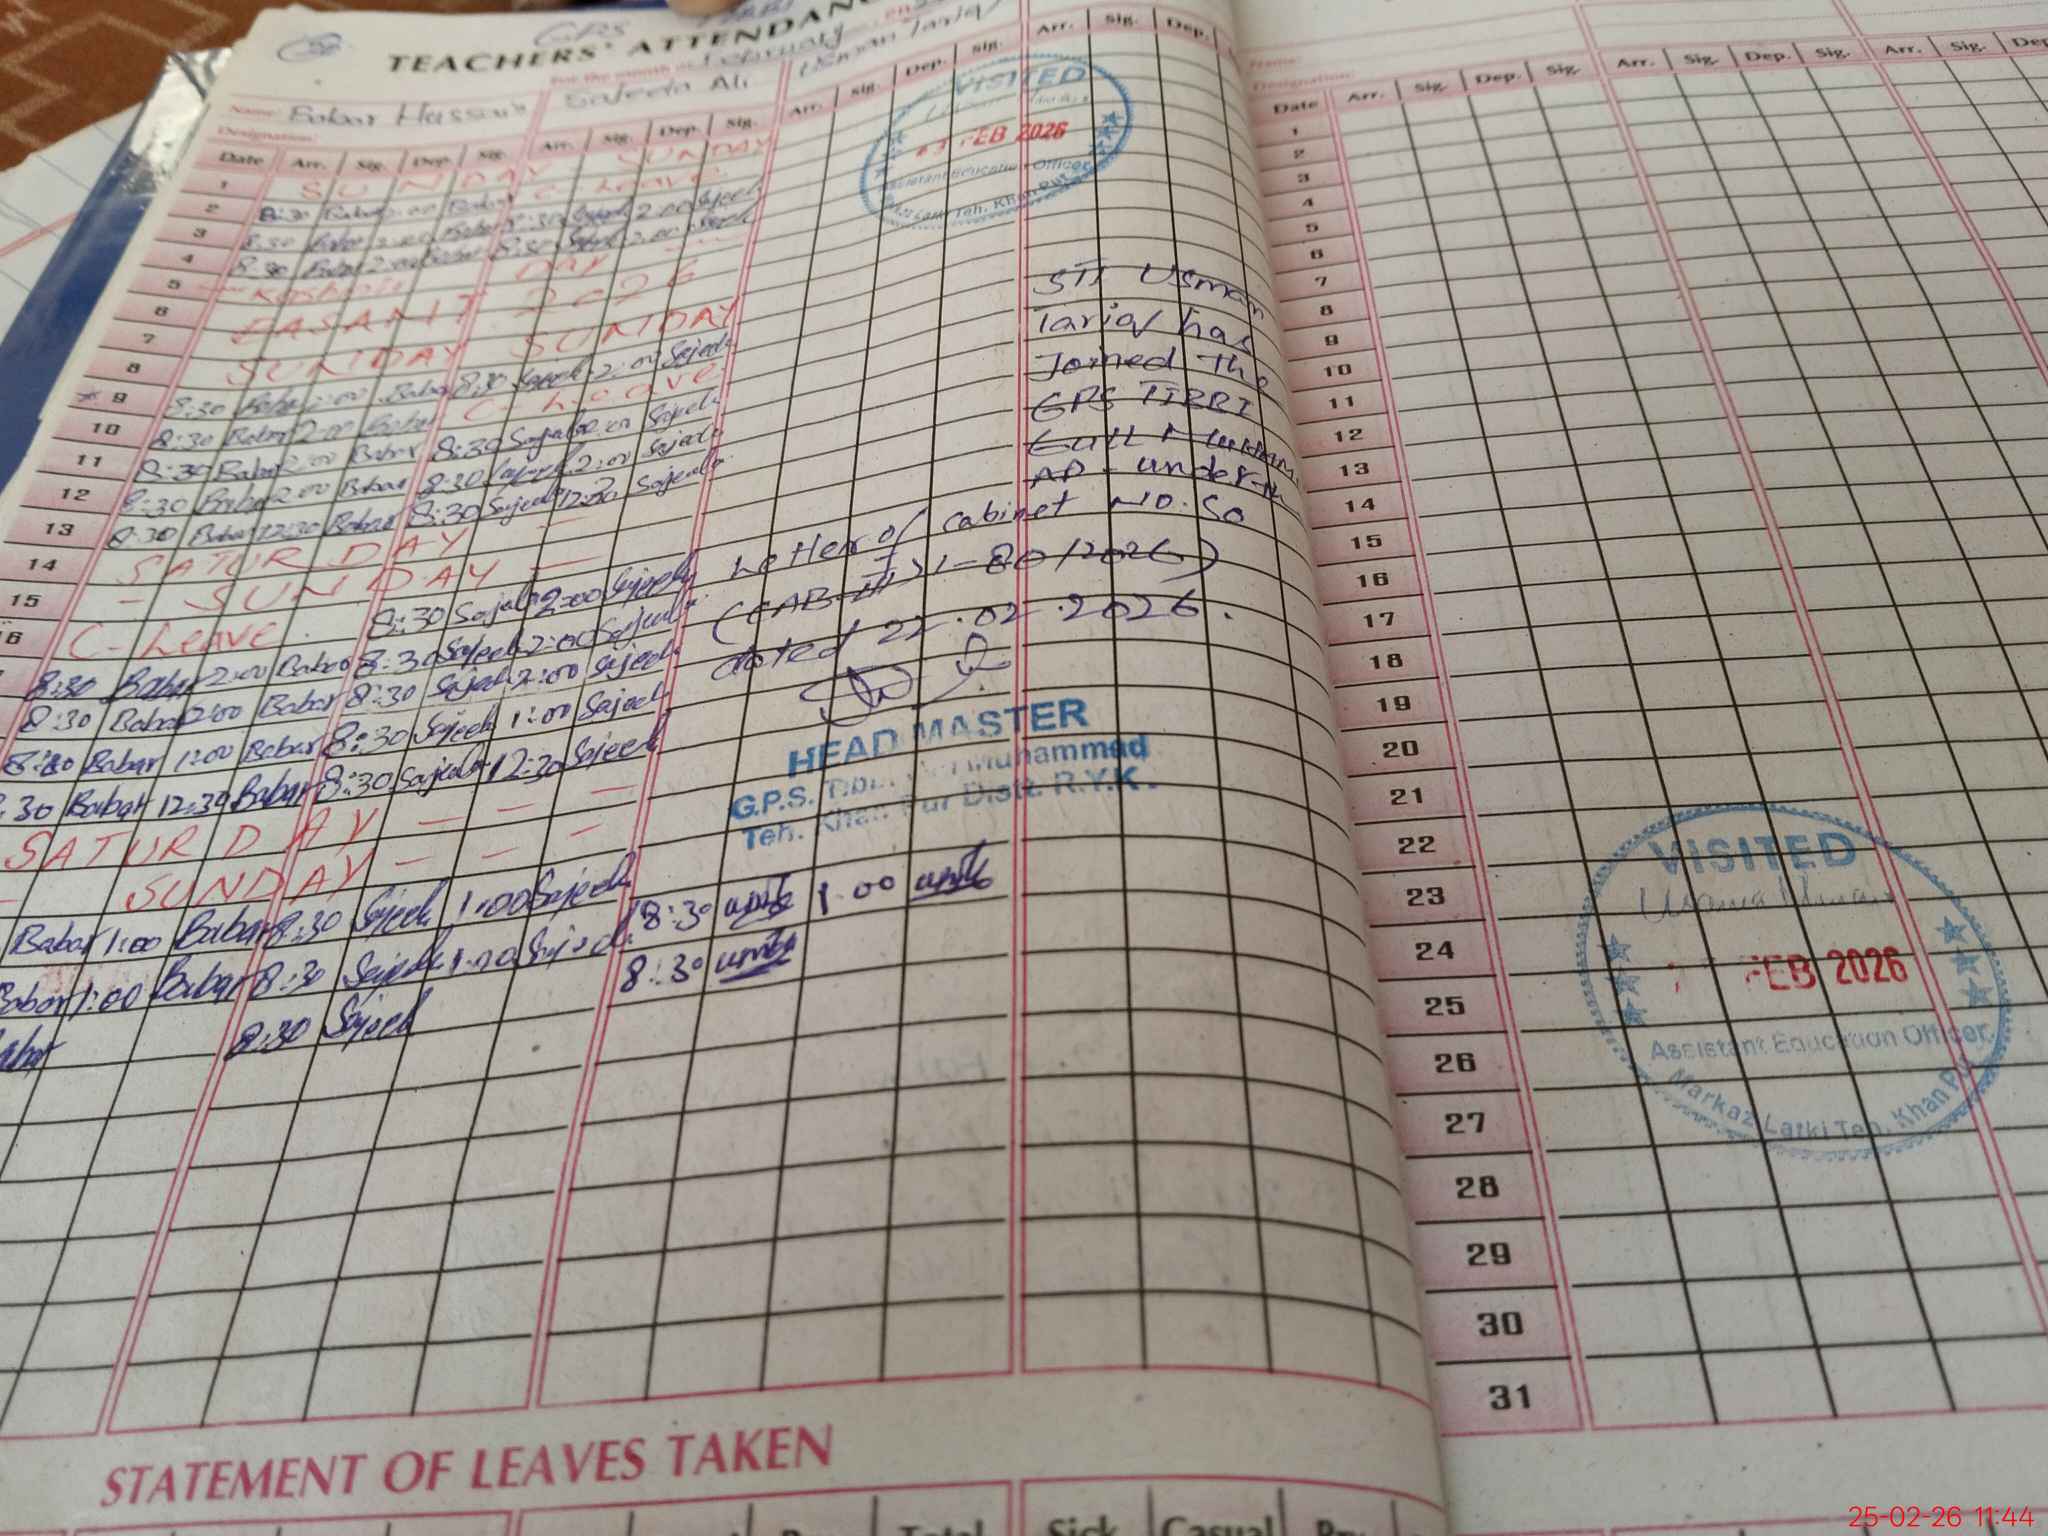 GPS
TEACHERS' ATTENDANC
For the month of February
Name: Babar Hussain Sajeela Ali Usman Tariq
Designation:
Date Arr. Sig. Dep. Sig. Arr. Sig. Dep. Sig. Arr. Sig. Dep. Sig. Arr. Sig. Dep.
1 SUNDAY SUNDAY
2 8:30 Babar 2:00 Babar C-Leave
3 8:30 Babar 2:00 Babar 8:30 Sajeela 2:00 Sajeela
4 8:30 Babar 2:00 Babar 8:30 Sajeela 2:00 Sajeela
5 Kashmir Day
6 BASANT 2026
7
8 SUNDAY SUNDAY
9 8:30 Babar 2:00 Babar 8:30 Sajeela 2:00 Sajeela
10 8:30 Babar 2:00 Babar C-Leave
11 8:30 Babar 2:00 Babar 8:30 Sajeela 2:00 Sajeela
12 8:30 Babar 2:00 Babar 8:30 Sajeela 2:00 Sajeela
13 8:30 Babar 12:30 Babar 8:30 Sajeela 12:30 Sajeela
14 SATURDAY
15 SUNDAY
16 C-Leave 8:30 Sajeela 2:00 Sajeela
8:30 Babar 2:00 Babar 8:30 Sajeela 2:00 Sajeela
8:30 Babar 2:00 Babar 8:30 Sajeela 2:00 Sajeela
Babar 1:00 Babar 8:30 Sajeela 1:00 Sajeela
:30 Babar 12:30 Babar 8:30 Sajeela 12:30 Sajeela
SATURDAY
SUNDAY
Babar 1:00 Babar 8:30 Sajeela 1:00 Sajeela 8:30 1.00
Babar 1:00 Babar 8:30 Sajeela 1:00 Sajeela 8:30
8:30 Sajeela
VISITED
FEB 2026
Assistant Education Officer
Teh. Khan Pur
STI Usman
Tariq has
Joined the
GPS TIBBI
Gull Muham
AD - under th
Letter of Cabinet NO. SO
(CAB-III) 1-80/2026)
dated 22.02.2026.
HEAD MASTER
G.P.S. Muhammad
Teh. Khan Pur Distt. R.Y.K.
STATEMENT OF LEAVES TAKEN
Total Sick Casual
Name:
Designation:
Date Arr. Sig. Dep. Sig. Arr. Sig. Dep. Sig. Arr. Sig. Dep
1
2
3
4
5
6
7
8
9
10
11
12
13
14
15
16
17
18
19
20
21
22
23
24
25
26
27
28
29
30
31
VISITED
FEB 2026
Assistant Education Officer
Markaz Larki Teh. Khan Pur
25-02-26 11:44